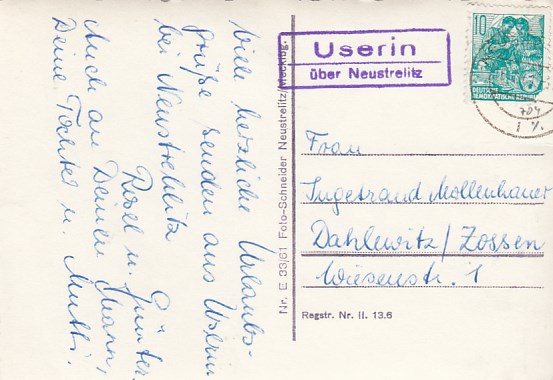 Viele herzliche Urlaubs-
grüße senden aus Userin
bei Neustrelitz
Rosel u. Günter
Auch an Deinen Mann,
Deine Tochter u. Mutti.
Nr. E 33/61 Foto-Schneider Neustrelitz/Mecklbg.
Userin
über Neustrelitz
10
DEUTSCHE
DEMOKRATISCHE REPUBLIK
Frau
Ingetraud Mollenhauer
Dahlewitz/Zossen
Wiesenstr. 1
Regstr. Nr. II. 13.6